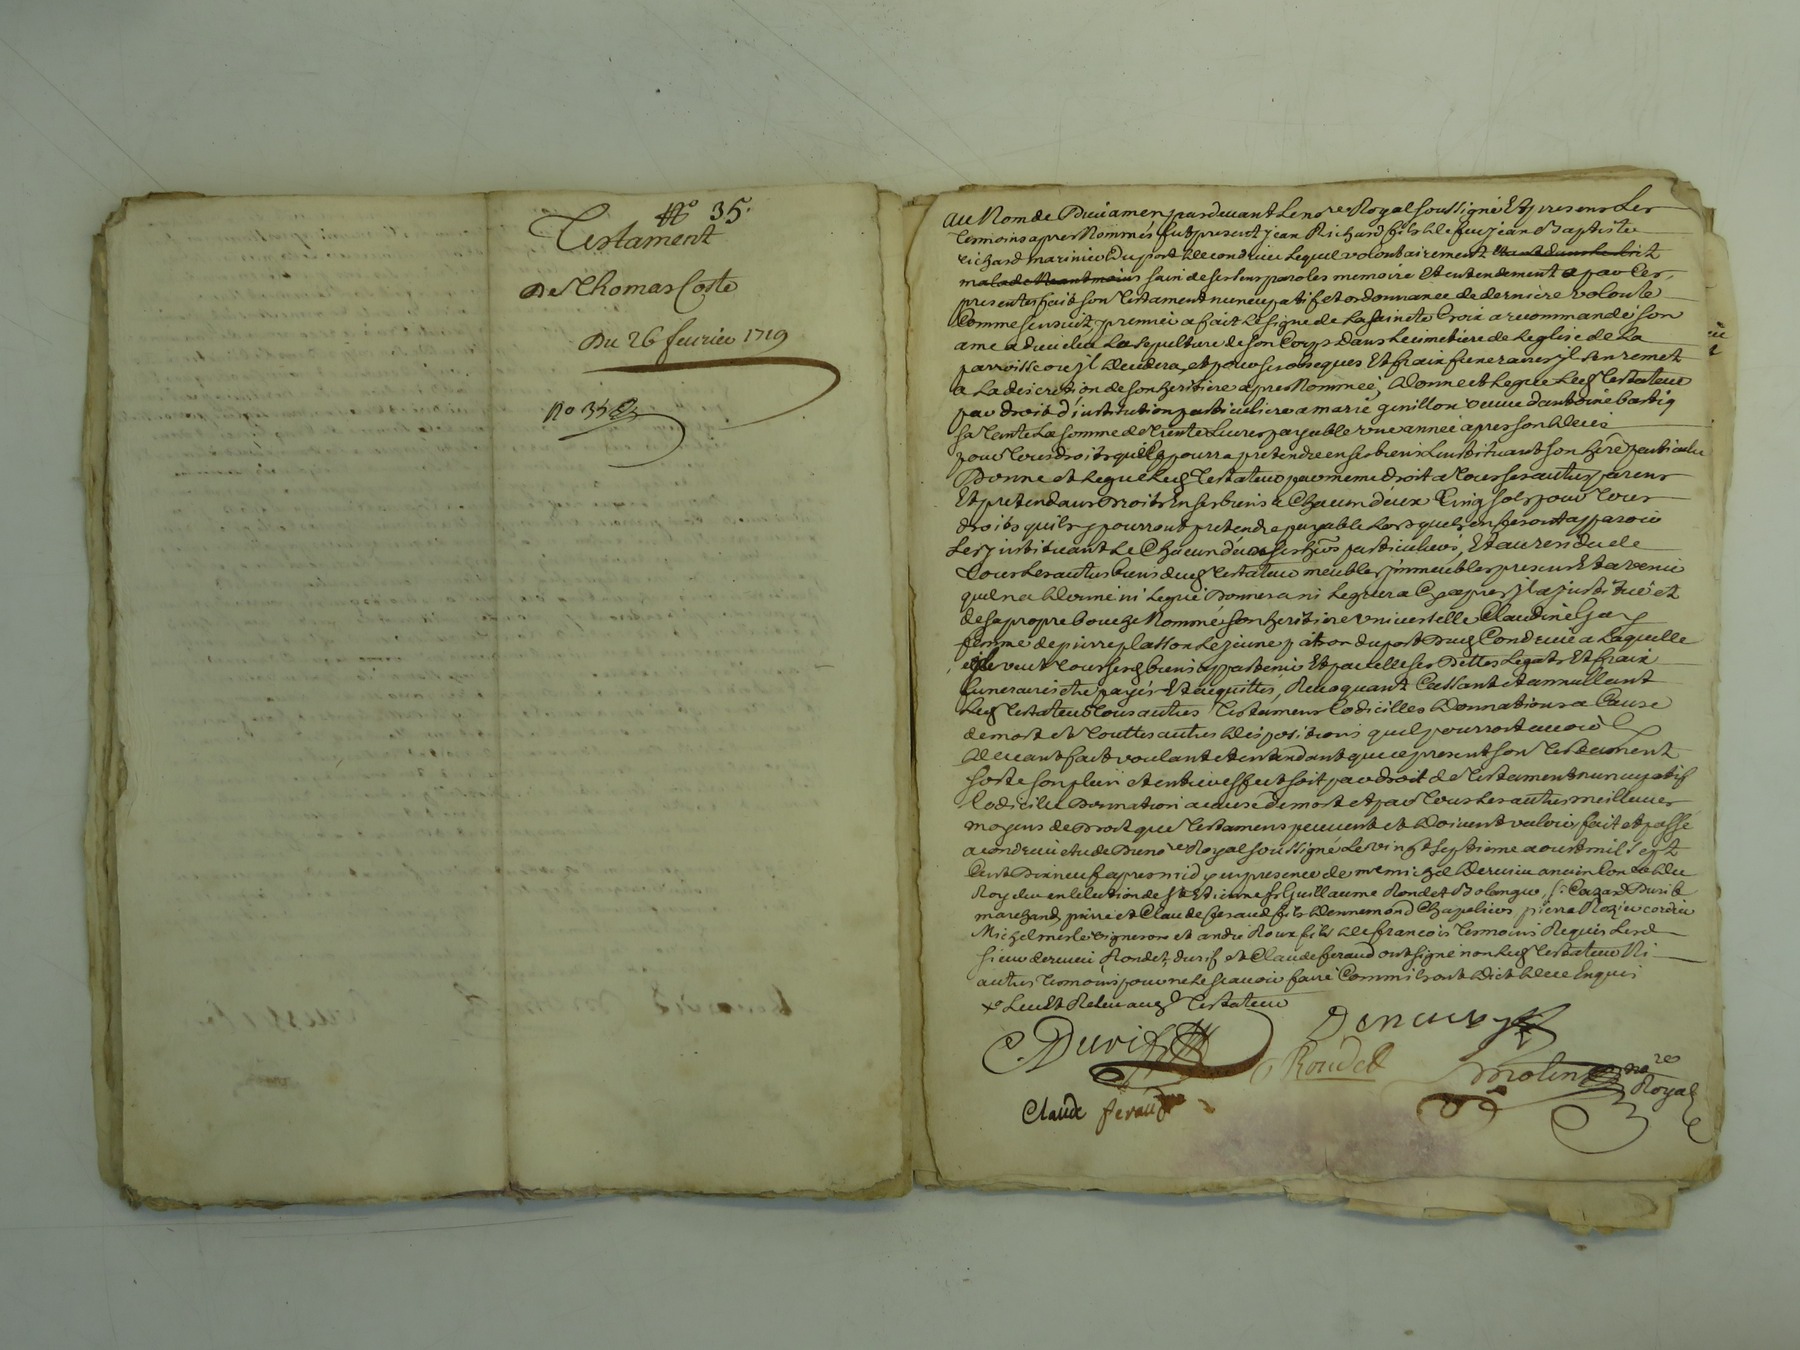 N° 35.
Testament
De Thomas Coste
Du 26 feurier 1719
No 35
Au Nom de Dieu amen pardeuant le no.re Royal soussigné Et presens Les
temoins apres Nommés fut present jean Richard fils de feu jean Baptiste
richard marinier Du port de condrieu lequel volontairement
sain de ses sens paroles memoire Et entendement a par ces
presentes fait son testament nuncupatif et ordonnance de derniere volonté
Comme sensuit, premier a fait le signe de la saincte Croix a recommandé son
ame a dieu eleu La sepulture de son Corps dans le cimetiere de leglise de La
parroisse ou jl decedera, et pour ses obseques Et fraix funeraires jl sen remet
a La discretion de son heritiere apres Nommée, donne et legue led testateur
par droit d'institution particuliere a marie genillon veuue dantoine bastig
sa tante La somme de trente Liures payable vne année apres son deces
pour tous droits quelle pourra pretendre en ses biens Linstituant son here particuliere
Donne et legue led testateur par meme droit a tous ses autres parens
Et pretendans Droits En ses biens a Chacun deux Cinq sols pour tous
droits quils y pourront pretendre payable Lors quils en feront apparoir
Les instituant Le Chacun deux ses hers particuliers, Et au residu de
tous Les autres biens dud testateur meubles jmmeubles presens Et a venir
quel na donné ni legué Donnera ni leguera Cy apres jl a jnstitué et
de sa propre bouche Nommé son heritiere vniuerselle Claudine
femme de pierre platton Le jeune patron du port Dud Condrieu a Laquelle
il veut tous sesd biens appartenir Et par elle ses Dettes Legats Et fraix
funeraires etre payés Et acquittés, Reuoquant Cassant et annullant
Led testateur tous autres testamens Codicilles donnations a Cause
de mort et touttes autres dispositions quel pourroit auoir
deuant fait voulant et entendant que ce present son testament
sorte son plein et entier effect soit par droit de testament nuncupatif
Codicille Donnation a cause de mort et par tous Les autres meilleures
moyens de Droit que testamens peuuent et doiuent valoir fait et passé
a condrieu etude Du no.re Royal soussigné Le vingt septieme aoust mil sept
Cent Dix neuf apres midy en presence de me michel deruieu ancien Con.er du
Roy eleu en lelection de St Etienne sr Guillaume Rondet Bolangr, sr Cezard Durif
marchand, pierre et Claude feraud fils dennemond Chapeliers pierre Rozier cordier
Michel merle vigneron et andré Roux fils de francois temoins Requis Lesd
sieur deruieu Rondet, durif et Claude feraud ont signé non Led testateur Ni
autres temoins pour ne le scauoir faire Comm ils ont dit de ce Enquis
Leu Et Releu aud testateur
C. Durif
Rondet
Claude feraud
Molin no.re
Royal